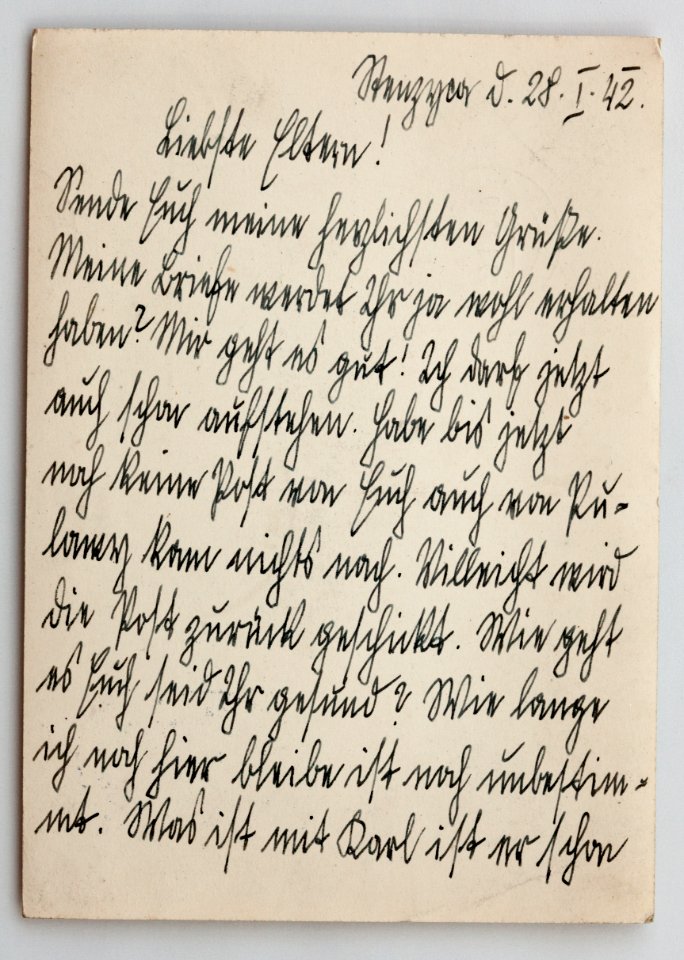 Stenzyca d. 28. I. 42.
Liebste Eltern!
Sende Euch meine herzlichsten Grüße.
Meine Briefe werdet Ihr ja wohl erhalten
haben? Mir geht es gut! Ich darf jetzt
auch schon aufstehen. Habe bis jetzt
noch keine Post von Euch auch von Pu-
lawy kam nichts nach. Villeicht wird
die Post zurück geschickt. Wie geht
es Euch, seid Ihr gesund? Wie lange
ich noch hier bleibe ist noch unbestim-
mt. Was ist mit Karl ist er schon